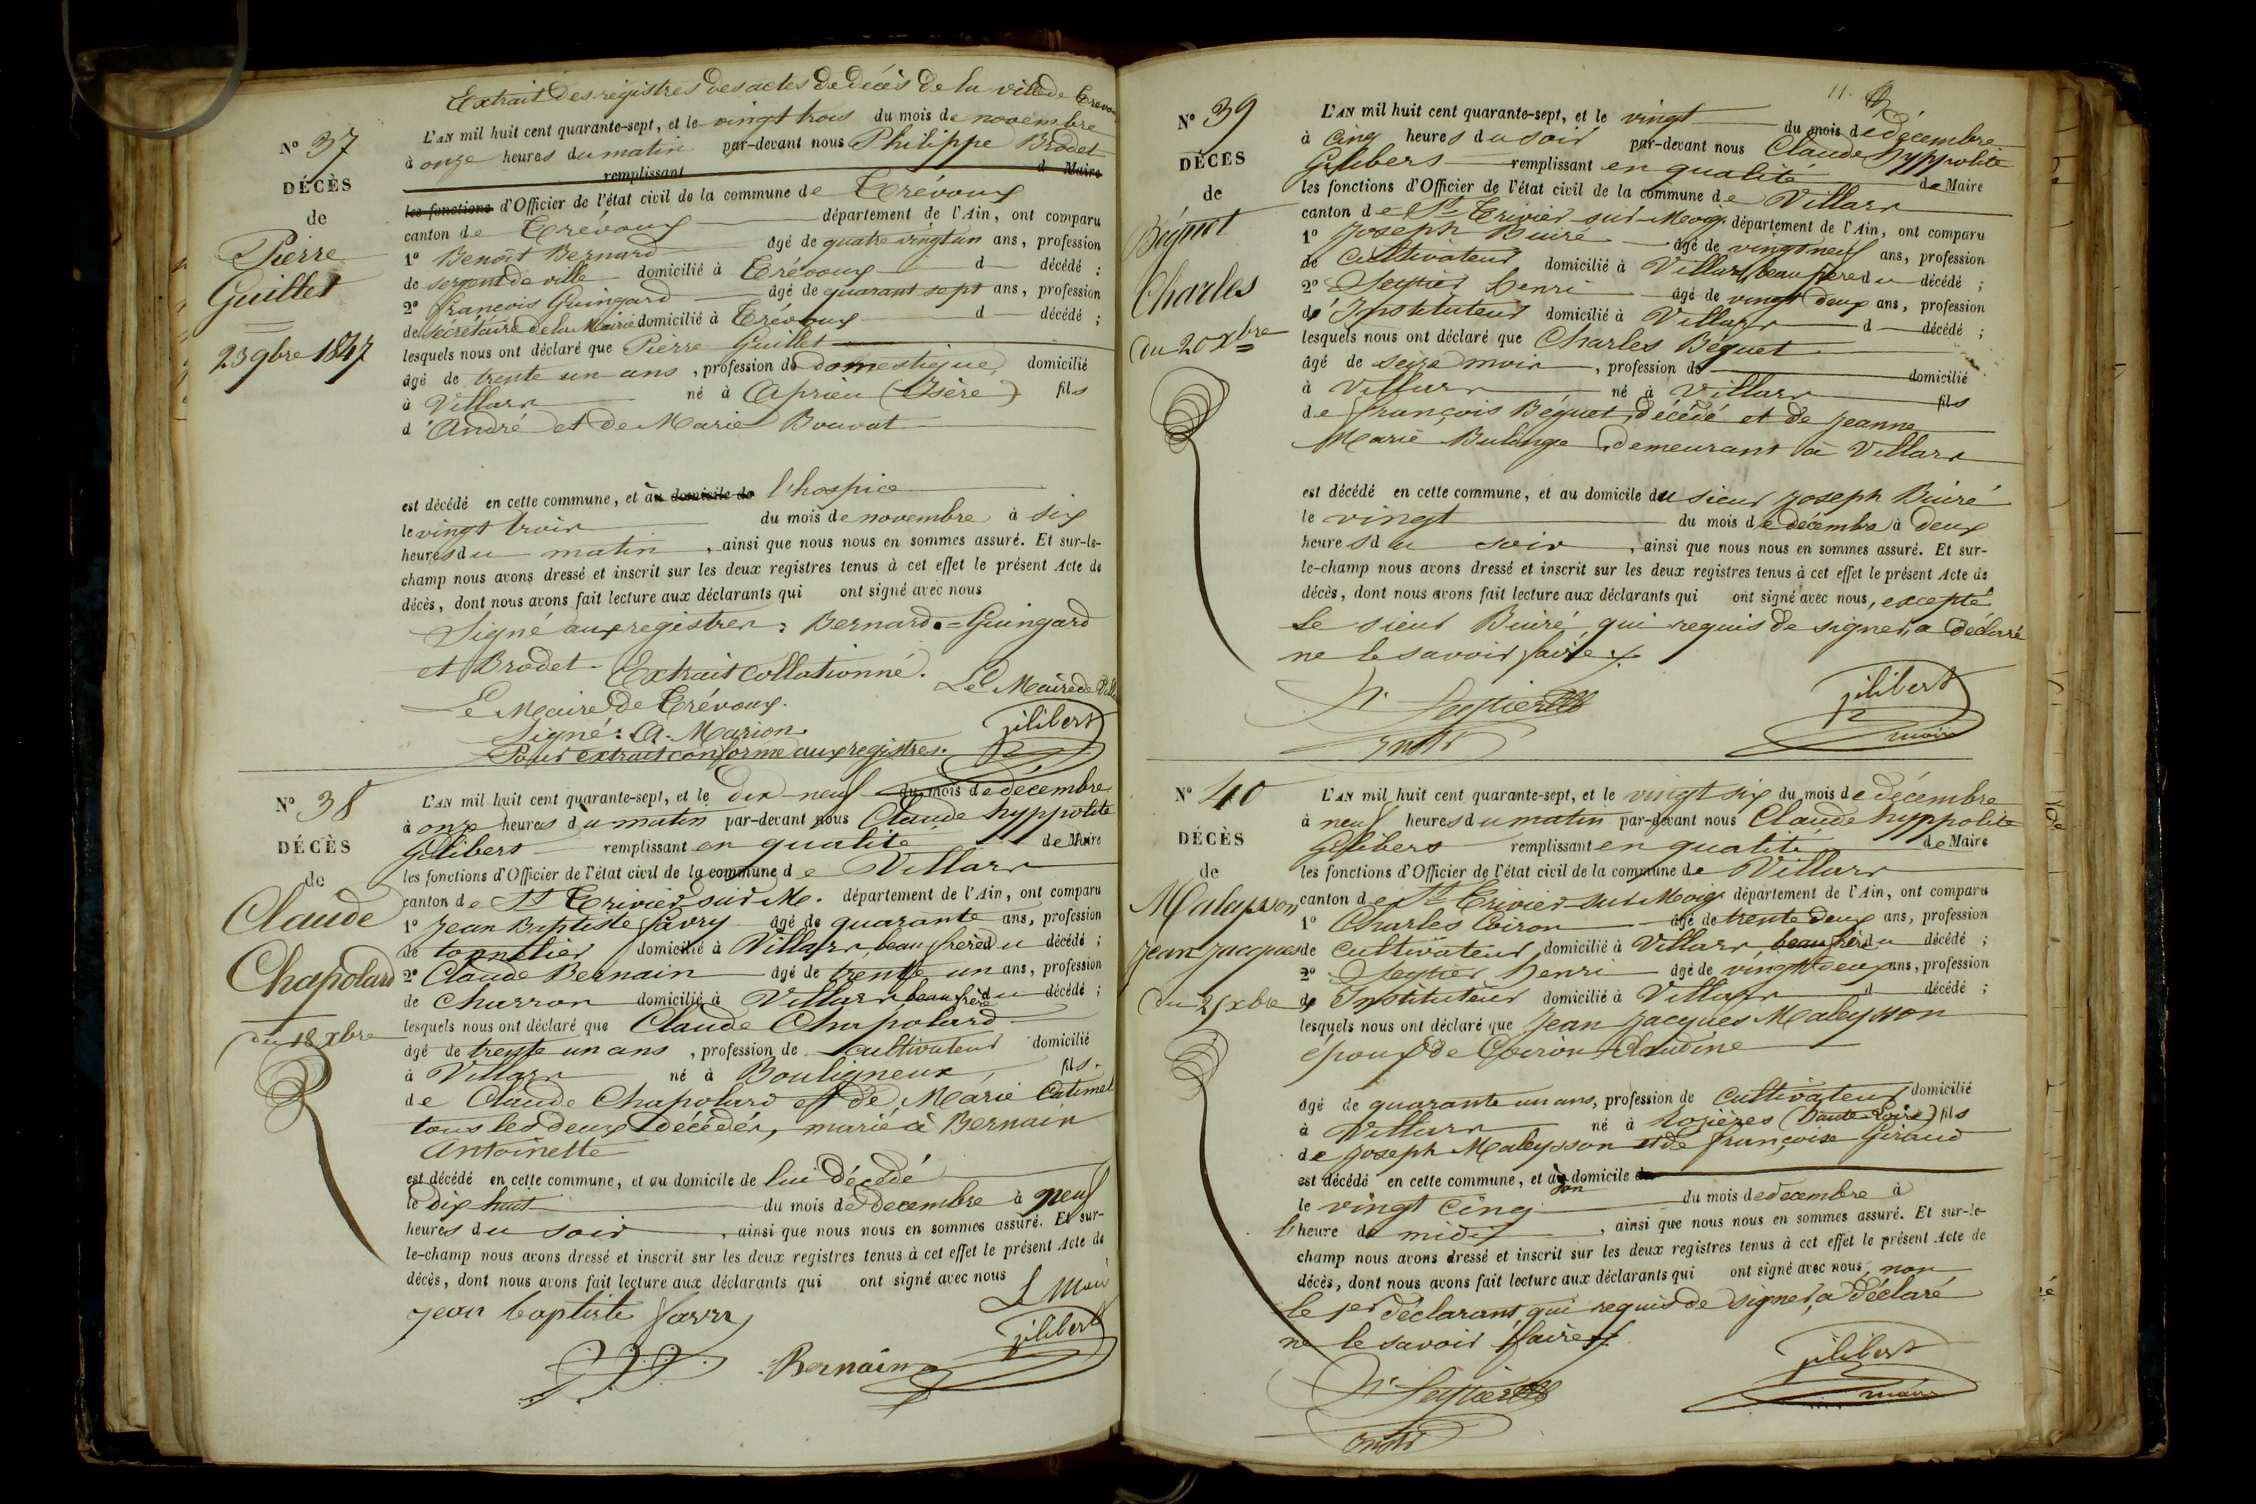 Extrait des registres des actes de décès de la ville de Trévoux
N° 37
DÉCÈS
de
Pierre
Guillet
23 9bre 1847
L'AN mil huit cent quarante-sept, et le vingt trois du mois de novembre
à onze heures du matin par-devant nous Philippe Brodet
remplissant d Maire
les fonctions d'Officier de l'état civil de la commune de Trévoux
canton de Trévoux département de l'Ain, ont comparu
1° Benoît Bernard âgé de quatre vingt un ans, profession
de sergent de ville domicilié à Trévoux d décédé ;
2° françois Guingard âgé de quarant sept ans, profession
de secrétaire de la Mairie domicilié à Trévoux d décédé ;
lesquels nous ont déclaré que Pierre Guillet
âgé de trente un ans, profession de domestique, domicilié
à Villars né à Aprieu (Isère) fils
d'André et de Marie Bouvat
est décédé en cette commune, et au domicile de l'hospice
le vingt trois du mois de novembre à six
heures du matin, ainsi que nous nous en sommes assuré. Et sur-le-
champ nous avons dressé et inscrit sur les deux registres tenus à cet effet le présent Acte de
décès, dont nous avons fait lecture aux déclarants qui ont signé avec nous
Signé aux registres : Bernard = Guingard
et Brodet. Extrait collationné.
Le Maire de Trévoux.
Signé : A. Marion.
Pour extrait conforme aux registres.
Le Maire de Vill
gilibert
N° 38
DÉCÈS
de
Claude
Chapolard
du 18 xbre
L'AN mil huit cent quarante-sept, et le dix-neuf du mois de décembre
à onze heures du matin par-devant nous Claude hyppolite
Gilibert remplissant en qualité de Maire
les fonctions d'Officier de l'état civil de la commune de Villars
canton de St Trivier sur M. département de l'Ain, ont comparu
1° Jean Baptiste favry âgé de quarante ans, profession
de tonnelier domicilié à Villars, beau frère du décédé ;
2° Claude Bernain âgé de trente un ans, profession
de charron domicilié à Villars beau frère du décédé ;
lesquels nous ont déclaré que Claude Chapolard
âgé de trente un ans, profession de cultivateur domicilié
à Villars né à Bouligneux, fils
de Claude Chapolard et de Marie Catimel
tous les deux décédés, marié à Bernain
Antoinette
est décédé en cette commune, et au domicile de lui décédé
le dix huit du mois de décembre à neuf
heures du soir, ainsi que nous nous en sommes assuré. Et sur-
le-champ nous avons dressé et inscrit sur les deux registres tenus à cet effet le présent Acte de
décès, dont nous avons fait lecture aux déclarants qui ont signé avec nous
jean baptiste favry
Bernain
gilibert
11.
N° 39
DÉCÈS
de
Béguet
Charles
du 20 xbre
L'AN mil huit cent quarante-sept, et le vingt du mois de décembre
à cinq heures du soir par-devant nous Claude hyppolite
Gilibert remplissant en qualité de Maire
les fonctions d'Officier de l'état civil de la commune de Villars
canton de St Trivier sur Moig. département de l'Ain, ont comparu
1° Joseph Buiré âgé de vingt neuf ans, profession
de cultivateur domicilié à Villars, beau frère du décédé ;
2° Seytier henri âgé de vingt deux ans, profession
de Instituteur domicilié à Villars d décédé ;
lesquels nous ont déclaré que Charles Béguet
âgé de seize mois, profession de domicilié
à Villars né à Villars fils
de françois Béguet, décédé et de jeanne
Marie Bulinge, demeurant à Villars
est décédé en cette commune, et au domicile du sieur joseph Buiré
le vingt du mois de décembre à deux
heures du soir, ainsi que nous nous en sommes assuré. Et sur-
le-champ nous avons dressé et inscrit sur les deux registres tenus à cet effet le présent Acte de
décès, dont nous avons fait lecture aux déclarants qui ont signé avec nous, excepté
le sieur Buiré qui requis de signer, a déclaré
ne le savoir faire.
h. Seytier
instit
gilibert
maire
N° 40
DÉCÈS
de
Maleysson
jean jacques
du 25 xbre
L'AN mil huit cent quarante-sept, et le vingt six du mois de décembre
à neuf heures du matin par-devant nous Claude hyppolite
Gilibert remplissant en qualité de Maire
les fonctions d'Officier de l'état civil de la commune de Villars
canton de St Trivier sur Moig. département de l'Ain, ont comparu
1° Charles Coiron âgé de trente deux ans, profession
de cultivateur domicilié à Villars beau frère du décédé ;
2° Seytier henri âgé de vingt deux ans, profession
de Instituteur domicilié à Villars d décédé ;
lesquels nous ont déclaré que jean jacques Maleysson
époux de Coiron Claudine
âgé de quarante un ans, profession de cultivateur domicilié
à Villars né à Rozières (Haute Loire) fils
de joseph Maleysson et de françoise Giraud
est décédé en cette commune, et à son domicile de
le vingt cinq du mois de décembre à
l'heure de midi, ainsi que nous nous en sommes assuré. Et sur-le-
champ nous avons dressé et inscrit sur les deux registres tenus à cet effet le présent Acte de
décès, dont nous avons fait lecture aux déclarants qui ont signé avec nous, non
le 1er déclarant qui requis de signer, a déclaré
ne le savoir faire.
h. Seytier
instit
gilibert
maire